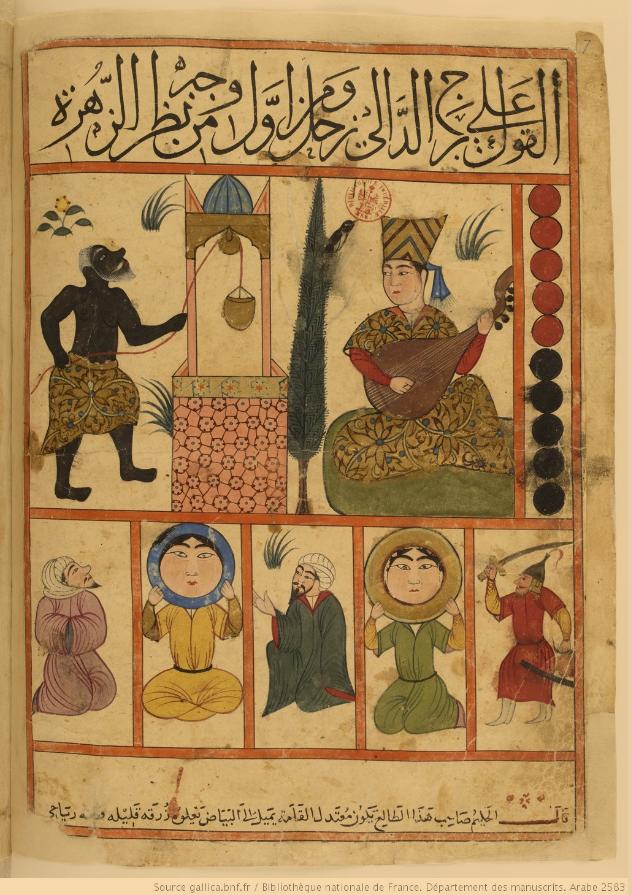 القول على برج الدالي زحل ومن اول وجه من نظر الزهرة
قال الحكيم صاحب هذا الطالع يكون معتدل القامة يميل الى البياض تعلوه زرقه قليله
7
Source gallica.bnf.fr / Bibliothèque nationale de France. Département des manuscrits. Arabe 2583